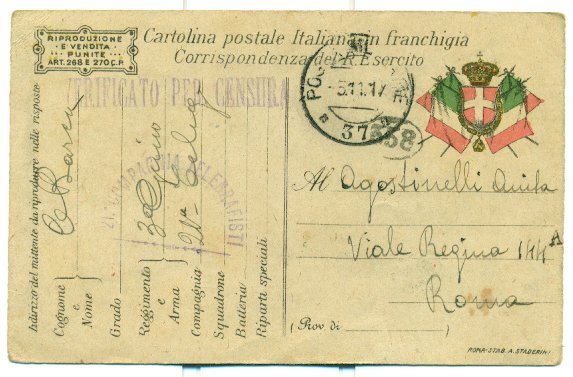 RIPRODUZIONE
E VENDITA
PUNITE
ART. 268 E 270 C.P.
Cartolina postale Italiana in franchigia
Corrispondenza del R. Esercito
VERIFICATO PER CENSURA
POS
NE
5.11.17
37
Indirizzo del mittente da riprodurre nelle risposte
Cognome
e
Nome
Grado
Reggimento
e
Arma
3° Genio
Compagnia
21ª
Squadrone
Batteria
Riparti speciali
21ª COMPAGNIA TELEGRAFISTI
Al Agostinelli Anita
Viale Regina 144 A
Roma
(Prov. di
ROMA-STAB. A. STADERINI